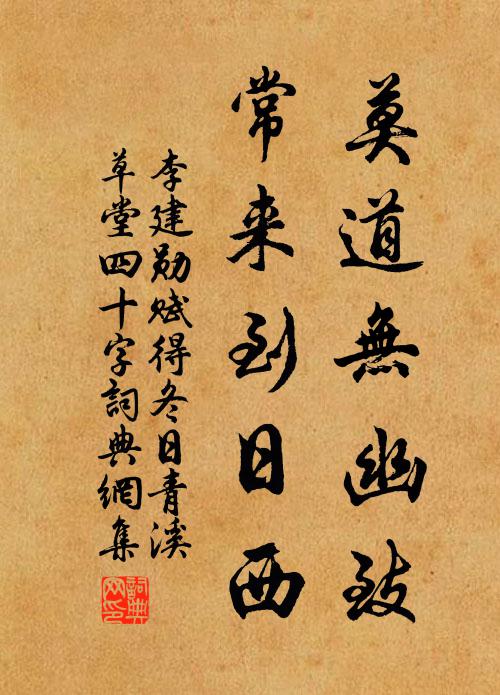 莫道無幽致
常来到日西
李建勋赋得冬日青溪
草堂四十字詞典網集
詞典
网印